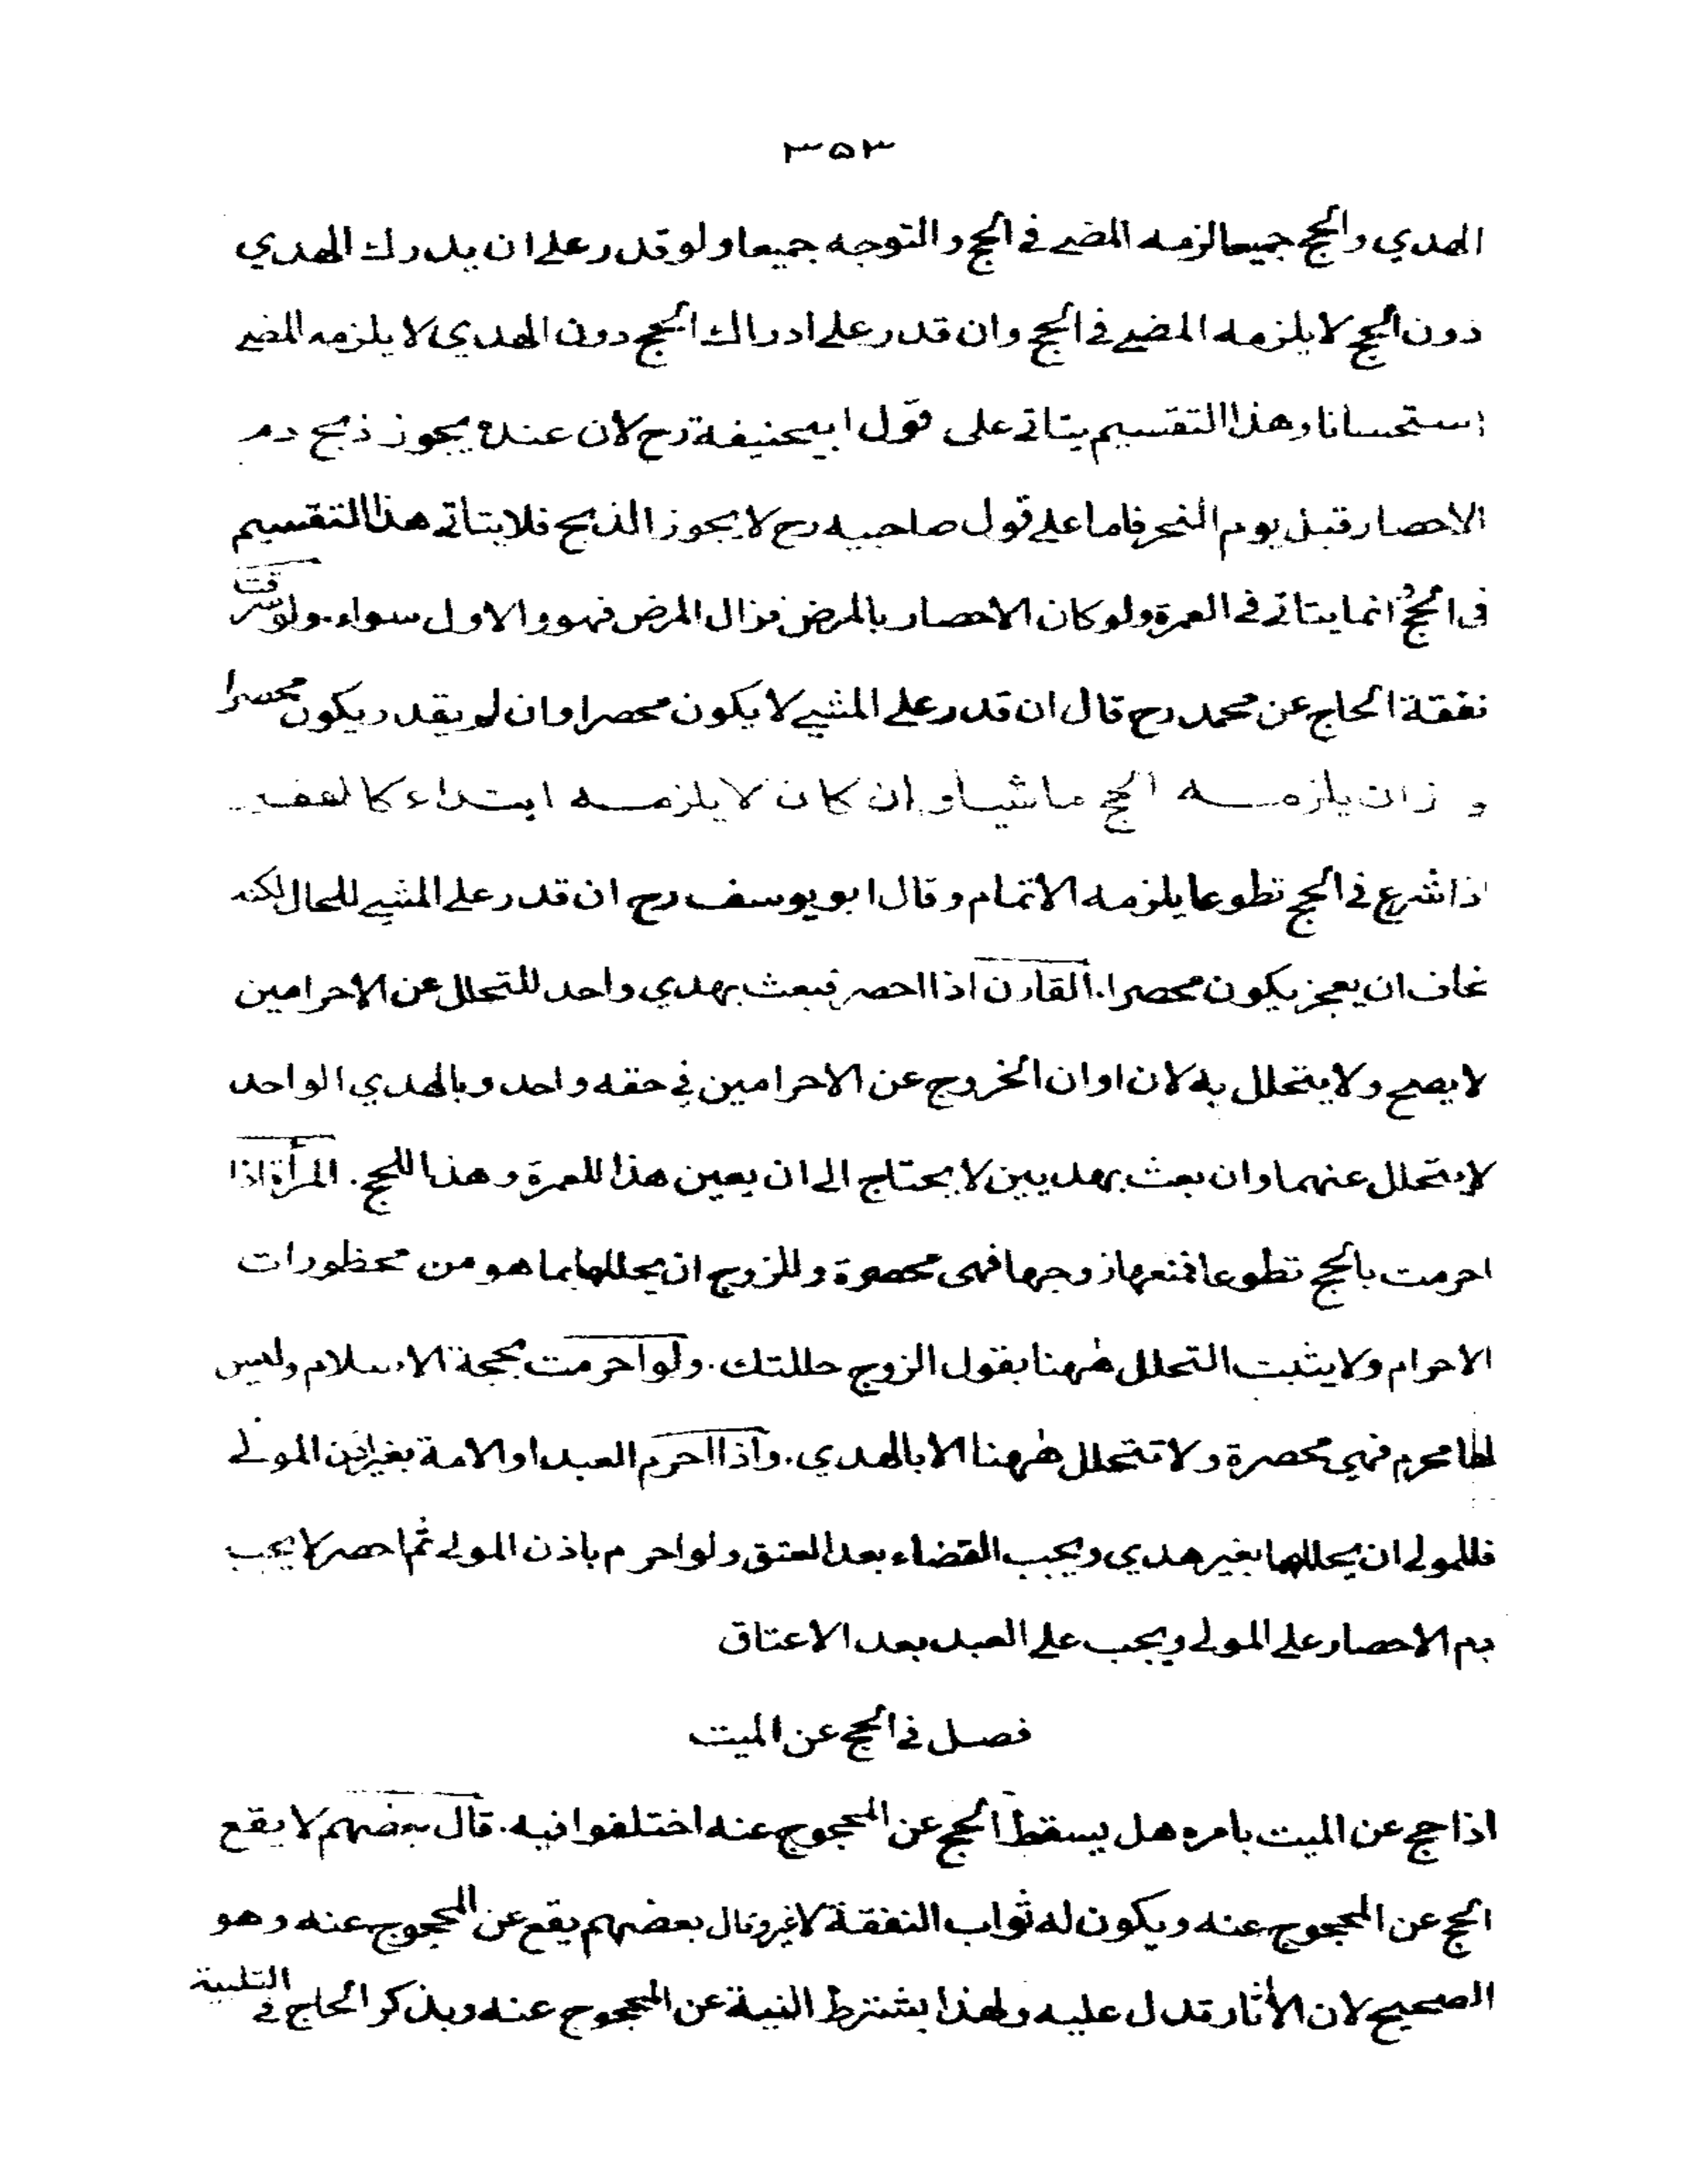 ٣٥٣
الهدي والحج جميعا لزمه المضے فے الحج والتوجه جميعا ولو قدر علے ان يدرك الهدي
دون الحج لا يلزمه المضے فے الحج وان قدر علے ادراك الحج دون الهدي لا يلزمه المضے
استحسانا وهذا التقسيم يتاتے على قول ابيحنيفة رح لان عنده يجوز ذبح دم
الاحصار قبل يوم النحر فاما علے قول صاحبيه رح لا يجوز الذبح فلا يتاتے هذا التقسيم
فى الحج انما يتاتے فے العمرة ولو كان الاحصار بالمرض فزال المرض فهو والاول سواء. ولو سرقت
نفقة الحاج عن محمد رح قال ان قدر علے المشيے لا يكون محصرا وان لم يقدر يكون محصرا
و زان يلزمه الحج ماشيا وان كان لا يلزمه ابتداء كالفقير
اذا شرع فے الحج تطوعا يلزمه الاتمام وقال ابو يوسف رح ان قدر علے المشيے للحال لكنه
خاف ان يعجز يكون محصرا. القارن اذا احصر فبعث بهدي واحد للتحلل عن الاحرامين
لا يصح ولا يتحلل به لان اوان الخروج عن الاحرامين فے حقه واحد وبالهدي الواحد
لا يتحلل عنهما وان بعث بهديين لا يحتاج الے ان يعين هذا للعمرة وهذا للحج. المرأة اذا
احرمت بالحج تطوعا فمنعها زوجها فهى محصرة وللزوج ان يحللها بما هو من محظورات
الاحرام ولا يثبت التحلل ههنا بقول الزوج حللتك. ولو احرمت بحجة الاسلام وليس
لها محرم فهي محصرة ولا تتحلل ههنا الا بالهدي. واذا احرم العبد او الامة بغير اذن المولے
فللمولے ان يحللهما بغير هدي ويجب القضاء بعد العتق ولو احرم باذن المولے ثم احصر لا يجب
دم الاحصار علے المولے ويجب علے العبد بعد الاعتاق
فصل فے الحج عن الميت
اذا حج عن الميت بامره هل يسقط الحج عن المحجوج عنه اختلفوا فيه. قال بعضهم لا يقع
الحج عن المحجوج عنه ويكون له ثواب النفقة لا غير وقال بعضهم يقع عن المحجوج عنه وهو
الصحيح لان الأثار تدل عليه ولهذا يشترط النية عن المحجوج عنه ويذكر الحاج فے التلبية